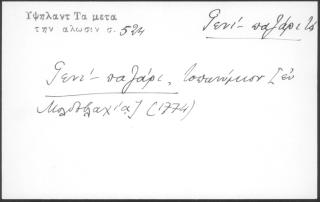 Υψηλαντ Τα μετα
την αλωσιν σ. 524
Γενί-παζάρι το
Γενί-παζάρι, τοπωνύμιον [ἐν
Μολδοβλαχίᾳ] (1774)